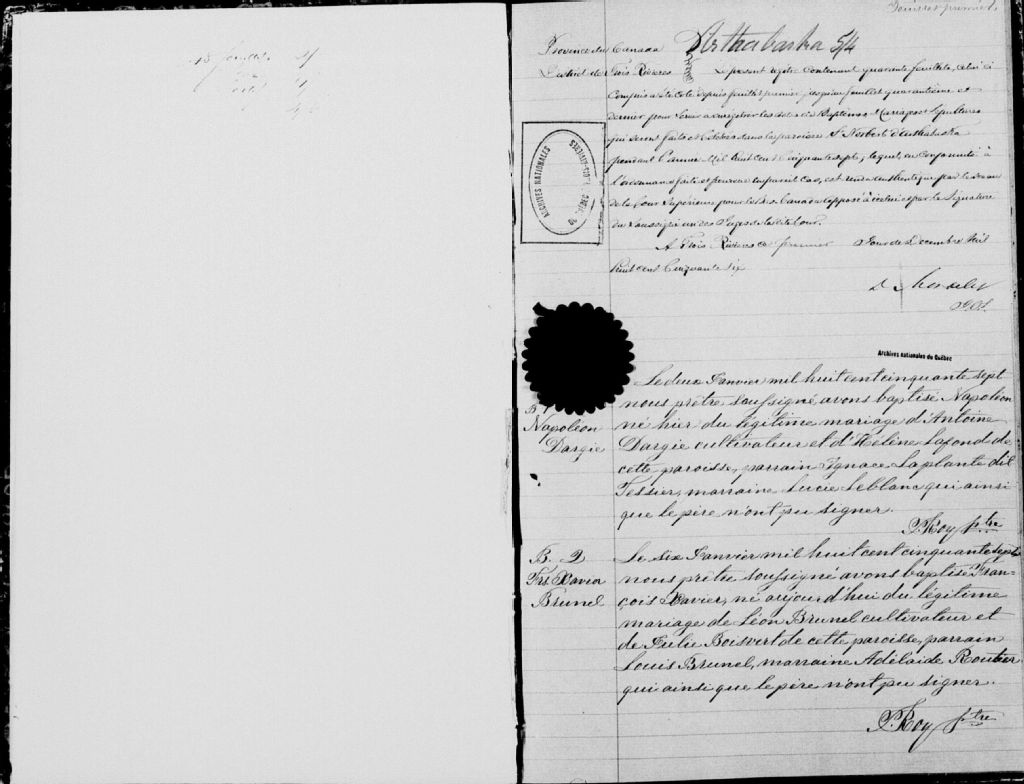 Feuillet premier
Arthabaska 54
Province du Canada
District des Trois Rivières
Le présent registre contenant quarante feuillets, celui ci
compris a été coté depuis feuillet premier jusqu'au feuillet quarantième et
dernier pour servir à enrégistrer les actes de Baptêmes Mariages et Sépultures
qui seront faits et célébrés dans la paroisse St Norbert d'Arthabaska
pendant l'année Mil huit cent Cinquante sept, lequel, en conformité à
l'ordonnance faite et pourvue en pareil cas, est rendu authentique par le sceau
de la Cour Supérieure pour le Bas Canada apposé à icelui et par la signature
du soussigné un des Juges de la dite Cour.
A Trois Rivières ce premier Jour de Decembre Mil
huit cent Cinquante six
ARCHIVES NATIONALES
Archives nationales du Québec
B. 1
Napoléon
Dargie
Le deux Janvier mil huit cent cinquante sept
nous prêtre soussigné avons baptisé Napoléon
né hier du légitime mariage d'Antoine
Dargie cultivateur et d'Hélène Lafond de
cette paroisse, parrain Ignace Laplante dit
Tessier, marraine Lucie Leblanc qui ainsi
que le père n'ont pu signer.
P. Roy ptre
B. 2
Frs Xavier
Brunel
Le six Janvier mil huit cent cinquante sept
nous prêtre soussigné avons baptisé Fran-
çois Xavier, né aujourd'hui du légitime
mariage de Léon Brunel cultivateur et
de Julie Boisvert de cette paroisse, parrain
Louis Brunel, marraine Adélaide Routier
qui ainsi que le père n'ont pu signer.
P. Roy ptre